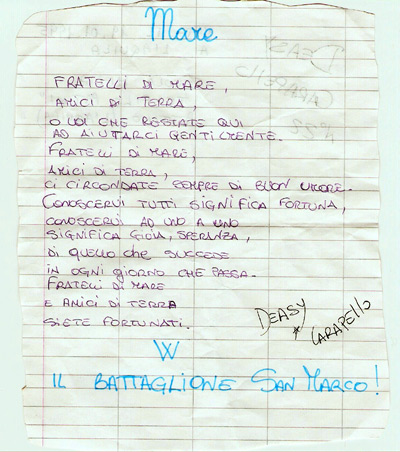 Mare
FRATELLI DI MARE,
AMICI DI TERRA,
O VOI CHE RESTATE QUI
AD AIUTARCI GENTILMENTE.
FRATELLI DI MARE,
AMICI DI TERRA,
CI CIRCONDATE SEMPRE DI BUON UMORE.
CONOSCERVI TUTTI SIGNIFICA FORTUNA,
CONOSCERVI AD UNO A UNO
SIGNIFICA GIOIA, SPERANZA,
DI QUELLO CHE SUCCEDE
IN OGNI GIORNO CHE PASSA.
FRATELLI DI MARE
E AMICI DI TERRA
SIETE FORTUNATI.
DEASY
CARAPELLO
W
IL BATTAGLIONE SAN MARCO!